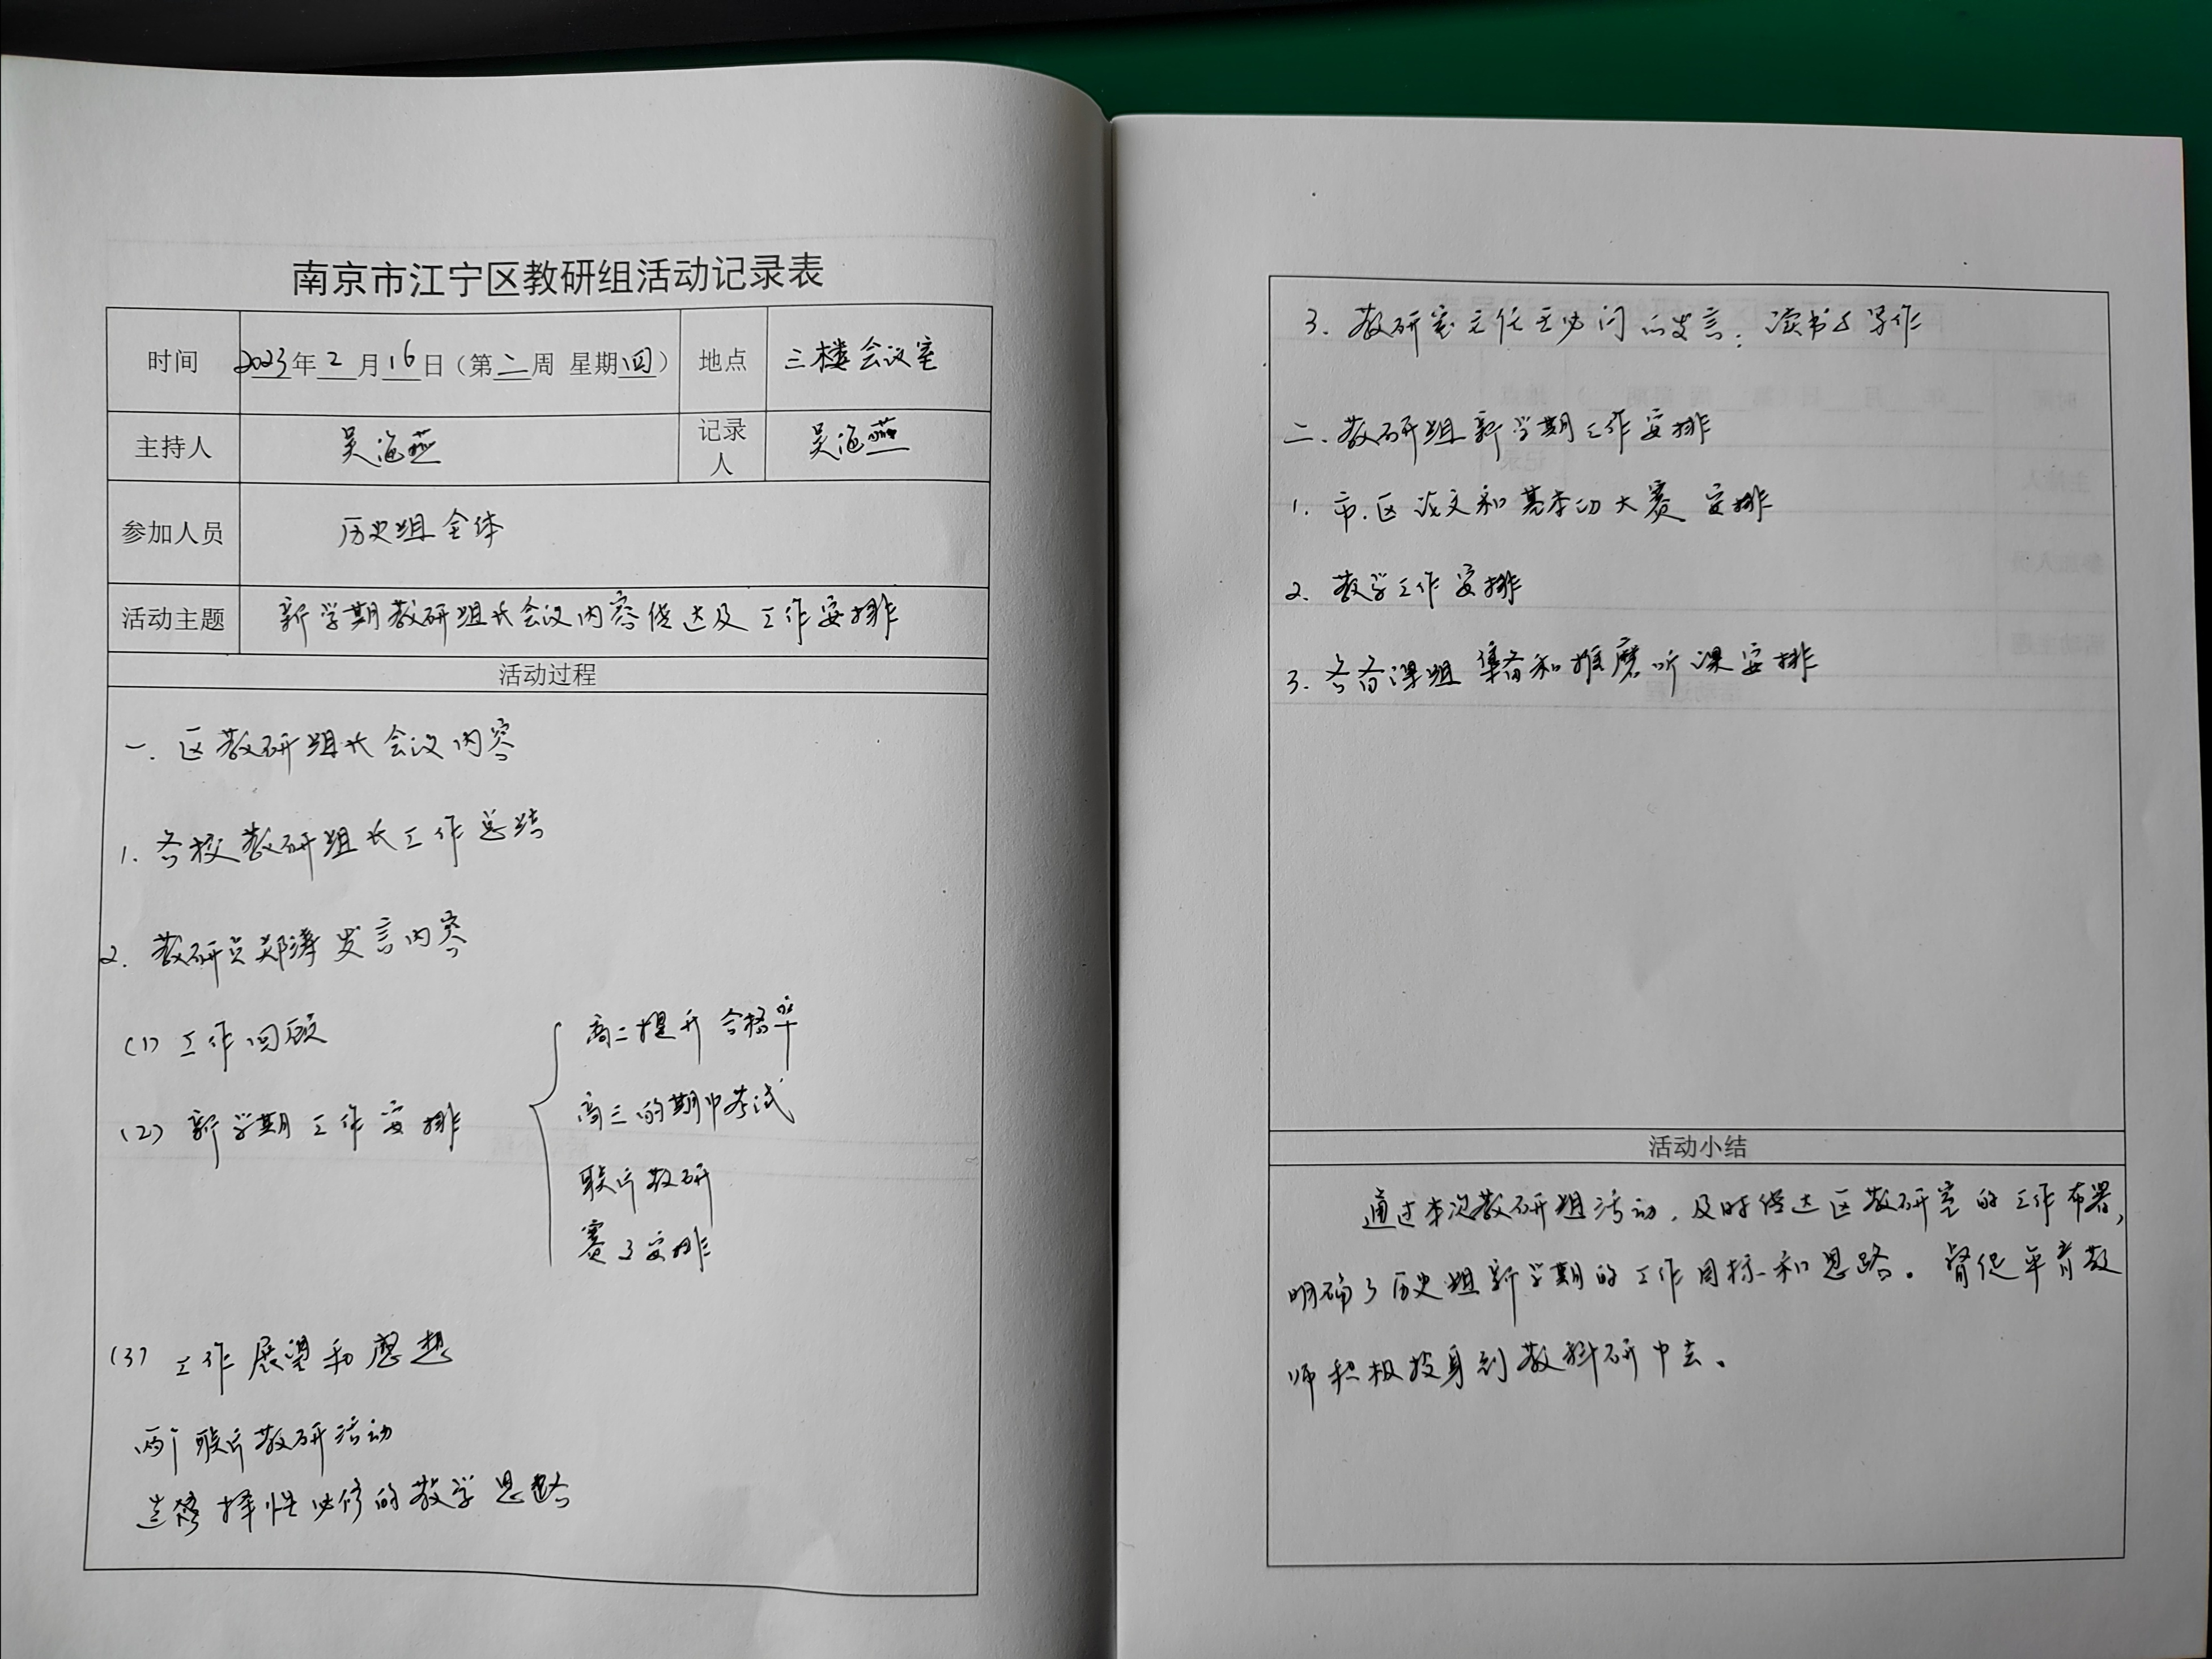 南京市江宁区教研组活动记录表
时间 2023年2月16日（第二周 星期四） 地点 三楼会议室
主持人 吴海燕 记录人 吴海燕
参加人员 历史组全体
活动主题 新学期教研组长会议内容传达及工作安排
活动过程
一.区教研组长会议内容
1.各校教研组长工作总结
2.教研员郑涛发言内容
(1)工作回顾
(2)新学期工作安排
高二提升合格率
高三的期中考试
联片教研
赛事安排
(3)工作展望和思想
两个联片教研活动
选择性必修的教学思路
3.教研室主任王必闩的发言:读书与写作
二.教研组新学期工作安排
1.市.区论文和基本功大赛安排
2.教学工作安排
3.各备课组集备和推磨听课安排
活动小结
通过本次教研组活动,及时传达区教研室的工作布署,
明确了历史组新学期的工作目标和思路。督促年青教
师积极投身到教科研中去。